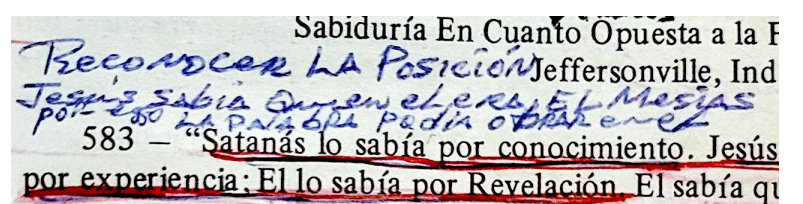 Sabiduría En Cuanto Opuesta a la F
RECONOCER LA POSICIÓN Jeffersonville, Ind
Jesús sabía Quien el era, EL Mesías
por eso LA PALABRA podía OBRAR en el
583 – “Satanás lo sabía por conocimiento. Jesús
por experiencia; El lo sabía por Revelación. El sabía qu